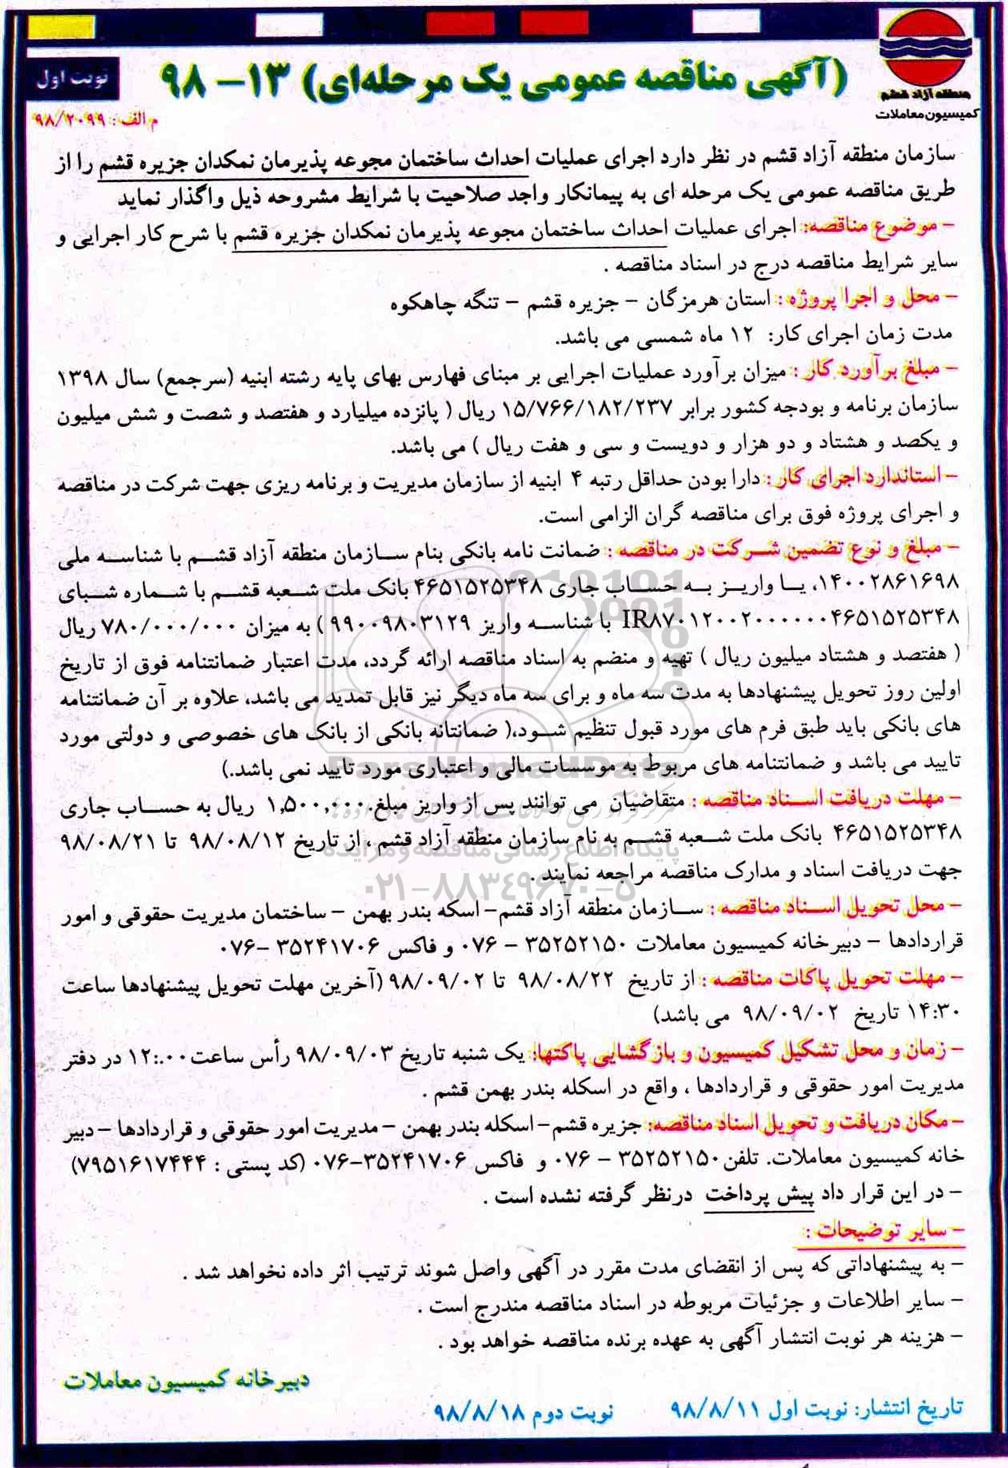 منطقه آزاد قشم
کمیسیون معاملات
(آگهی مناقصه عمومی یک مرحله‌ای) ۱۳- ۹۸
نوبت اول
م الف: ۹۸/۲۰۹۹
سازمان منطقه آزاد قشم در نظر دارد اجرای عملیات احداث ساختمان مجوعه پذیرمان نمکدان جزیره قشم را از
طریق مناقصه عمومی یک مرحله ای به پیمانکار واجد صلاحیت با شرایط مشروحه ذیل واگذار نماید
- موضوع مناقصه: اجرای عملیات احداث ساختمان مجوعه پذیرمان نمکدان جزیره قشم با شرح کار اجرایی و
سایر شرایط مناقصه درج در اسناد مناقصه .
- محل و اجرا پروژه : استان هرمزگان - جزیره قشم - تنگه چاهکوه
مدت زمان اجرای کار: ۱۲ ماه شمسی می باشد.
- مبلغ برآورد کار : میزان برآورد عملیات اجرایی بر مبنای فهارس بهای پایه رشته ابنیه (سرجمع) سال ۱۳۹۸
سازمان برنامه و بودجه کشور برابر ۱۵/۷۶۶/۱۸۲/۲۳۷ ریال ( پانزده میلیارد و هفتصد و شصت و شش میلیون
و یکصد و هشتاد و دو هزار و دویست و سی و هفت ریال ) می باشد.
- استاندارد اجرای کار : دارا بودن حداقل رتبه ۴ ابنیه از سازمان مدیریت و برنامه ریزی جهت شرکت در مناقصه
و اجرای پروژه فوق برای مناقصه گران الزامی است.
- مبلغ و نوع تضمین شرکت در مناقصه : ضمانت نامه بانکی بنام سازمان منطقه آزاد قشم با شناسه ملی
۱۴۰۰۲۸۶۱۶۹۸، یا واریز به حساب جاری ۴۶۵۱۵۲۵۳۴۸ بانک ملت شعبه قشم با شماره شبای
IR۸۷۰۱۲۰۰۲۰۰۰۰۰۰۴۶۵۱۵۲۵۳۴۸ با شناسه واریز ۹۹۰۰۹۸۰۳۱۲۹ ) به میزان ۷۸۰/۰۰۰/۰۰۰ ریال
( هفتصد و هشتاد میلیون ریال ) تهیه و منضم به اسناد مناقصه ارائه گردد، مدت اعتبار ضمانتنامه فوق از تاریخ
اولین روز تحویل پیشنهادها به مدت سه ماه و برای سه ماه دیگر نیز قابل تمدید می باشد، علاوه بر آن ضمانتنامه
های بانکی باید طبق فرم های مورد قبول تنظیم شود،( ضمانتانه بانکی از بانک های خصوصی و دولتی مورد
تایید می باشد و ضمانتنامه های مربوط به موسسات مالی و اعتباری مورد تایید نمی باشد.)
ParsNamadData
- مهلت دریافت اسناد مناقصه : متقاضیان می توانند پس از واریز مبلغ ۱,۵۰۰,۰۰۰ ریال به حساب جاری
۴۶۵۱۵۲۵۳۴۸ بانک ملت شعبه قشم به نام سازمان منطقه آزاد قشم ، از تاریخ ۹۸/۰۸/۱۲ تا ۹۸/۰۸/۲۱
پایگاه اطلاع رسانی مناقصه و مزایده
جهت دریافت اسناد و مدارک مناقصه مراجعه نمایند .
۰۲۱-۸۸۳۴۹۶۷۰-۵
- محل تحویل اسناد مناقصه : سازمان منطقه آزاد قشم- اسکه بندر بهمن - ساختمان مدیریت حقوقی و امور
قراردادها - دبیرخانه کمیسیون معاملات ۳۵۲۵۲۱۵۰ - ۰۷۶ و فاکس ۳۵۲۴۱۷۰۶ -۰۷۶
- مهلت تحویل پاکات مناقصه : از تاریخ ۹۸/۰۸/۲۲ تا ۹۸/۰۹/۰۲ (آخرین مهلت تحویل پیشنهادها ساعت
۱۴:۳۰ تاریخ ۹۸/۰۹/۰۲ می باشد)
- زمان و محل تشکیل کمیسیون و بازگشایی پاکتها: یک شنبه تاریخ ۹۸/۰۹/۰۳ رأس ساعت ۱۲:۰۰ در دفتر
مدیریت امور حقوقی و قراردادها ، واقع در اسکله بندر بهمن قشم .
- مکان دریافت و تحویل اسناد مناقصه: جزیره قشم- اسکله بندر بهمن - مدیریت امور حقوقی و قراردادها - دبیر
خانه کمیسیون معاملات. تلفن ۳۵۲۵۲۱۵۰ - ۰۷۶ و فاکس ۳۵۲۴۱۷۰۶-۰۷۶ (کد پستی : ۷۹۵۱۶۱۷۴۴۴)
- در این قرار داد پیش پرداخت درنظر گرفته نشده است .
- سایر توضیحات :
- به پیشنهاداتی که پس از انقضای مدت مقرر در آگهی واصل شوند ترتیب اثر داده نخواهد شد .
- سایر اطلاعات و جزئیات مربوطه در اسناد مناقصه مندرج است .
- هزینه هر نوبت انتشار آگهی به عهده برنده مناقصه خواهد بود .
دبیرخانه کمیسیون معاملات
تاریخ انتشار: نوبت اول ۹۸/۸/۱۱ نوبت دوم ۹۸/۸/۱۸